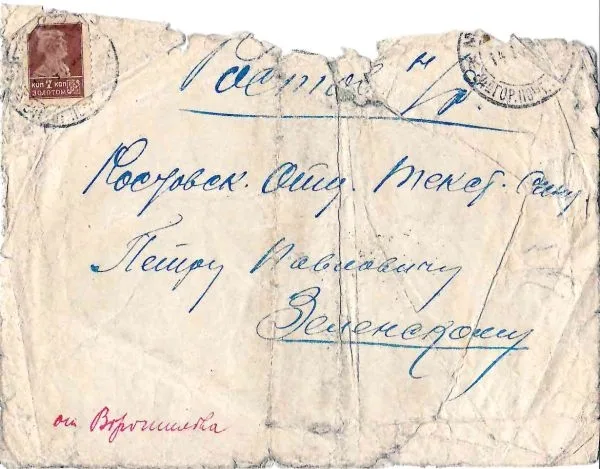 КОП 7 КОП
ЗОЛОТОМ
ГОР.ПОЧТ
Ростов н/Д
Ростовск. Отд. Текст. Синд.
Петру Павловичу
Зеленскому
от Ворошилова